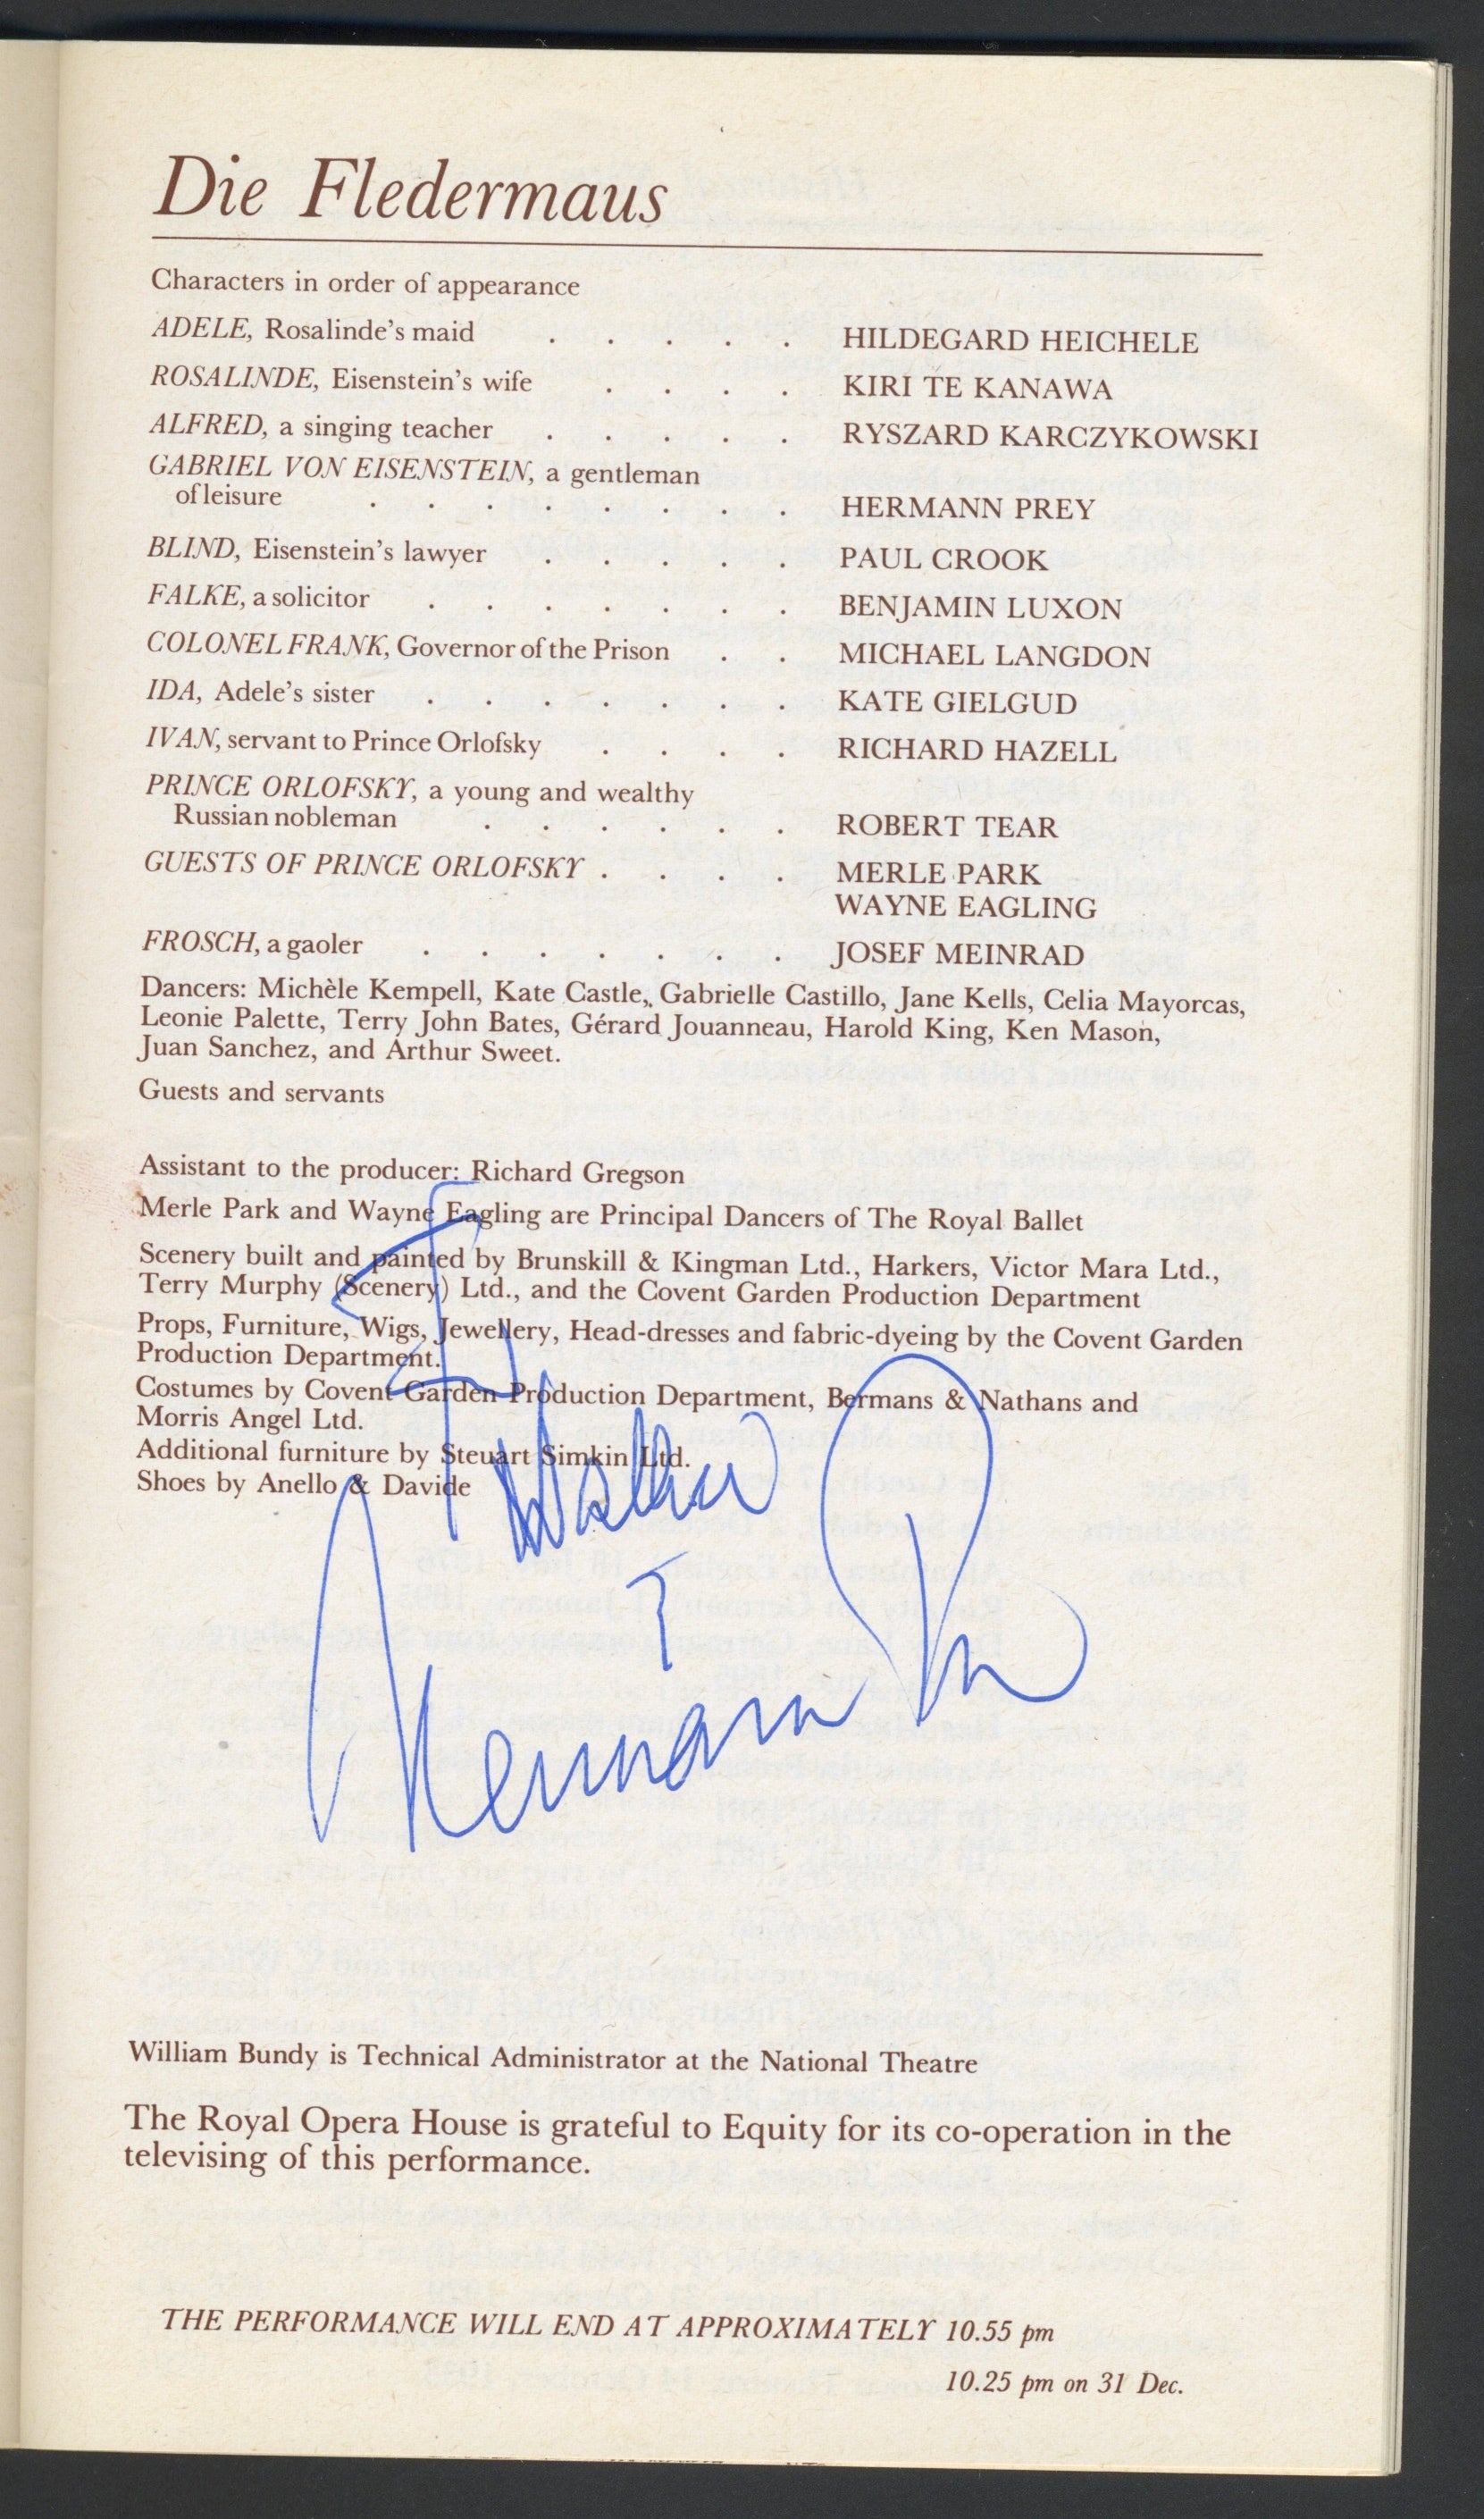 Die Fledermaus
Characters in order of appearance
ADELE, Rosalinde's maid . . . . . HILDEGARD HEICHELE
ROSALINDE, Eisenstein's wife . . . . KIRI TE KANAWA
ALFRED, a singing teacher . . . . . RYSZARD KARCZYKOWSKI
GABRIEL VON EISENSTEIN, a gentleman
of leisure . . . . . . . . HERMANN PREY
BLIND, Eisenstein's lawyer . . . . . PAUL CROOK
FALKE, a solicitor . . . . . . . BENJAMIN LUXON
COLONEL FRANK, Governor of the Prison . . MICHAEL LANGDON
IDA, Adele's sister . . . . . . . KATE GIELGUD
IVAN, servant to Prince Orlofsky . . . . RICHARD HAZELL
PRINCE ORLOFSKY, a young and wealthy
Russian nobleman . . . . . . ROBERT TEAR
GUESTS OF PRINCE ORLOFSKY . . . . MERLE PARK
WAYNE EAGLING
FROSCH, a gaoler . . . . . . . JOSEF MEINRAD
Dancers: Michèle Kempell, Kate Castle, Gabrielle Castillo, Jane Kells, Celia Mayorcas,
Leonie Palette, Terry John Bates, Gérard Jouanneau, Harold King, Ken Mason,
Juan Sanchez, and Arthur Sweet.
Guests and servants
Assistant to the producer: Richard Gregson
Merle Park and Wayne Eagling are Principal Dancers of The Royal Ballet
Scenery built and painted by Brunskill & Kingman Ltd., Harkers, Victor Mara Ltd.,
Terry Murphy (Scenery) Ltd., and the Covent Garden Production Department
Props, Furniture, Wigs, Jewellery, Head-dresses and fabric-dyeing by the Covent Garden
Production Department.
Costumes by Covent Garden Production Department, Bermans & Nathans and
Morris Angel Ltd.
Additional furniture by Steuart Simkin Ltd.
Shoes by Anello & Davide
Hermann Prey
William Bundy is Technical Administrator at the National Theatre
The Royal Opera House is grateful to Equity for its co-operation in the
televising of this performance.
THE PERFORMANCE WILL END AT APPROXIMATELY 10.55 pm
10.25 pm on 31 Dec.